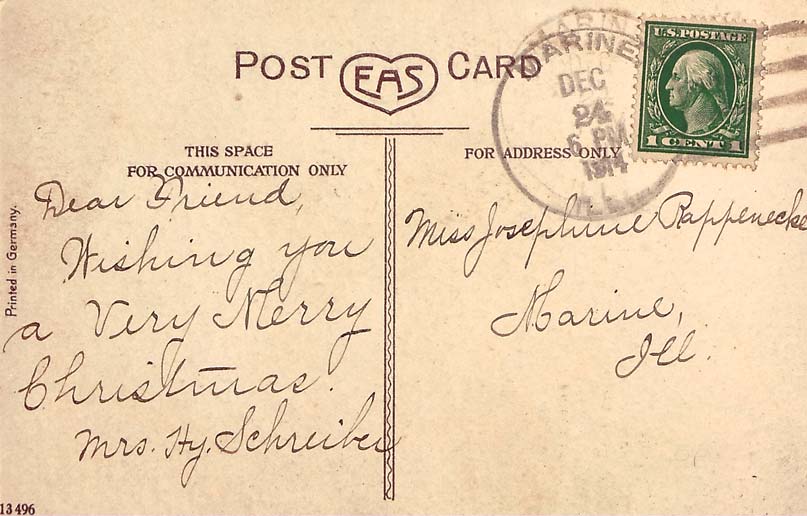 POST EAS CARD
MARINE
DEC
24
6 PM
1914
ILL.
U.S. POSTAGE
1 CENT 1
THIS SPACE
FOR COMMUNICATION ONLY
FOR ADDRESS ONLY
Dear Friend,
Wishing you
a Very Merry
Christmas.
Mrs. Hy. Schreiber
Miss Josephine Rappenecke
Marine,
Ill.
Printed in Germany.
13496